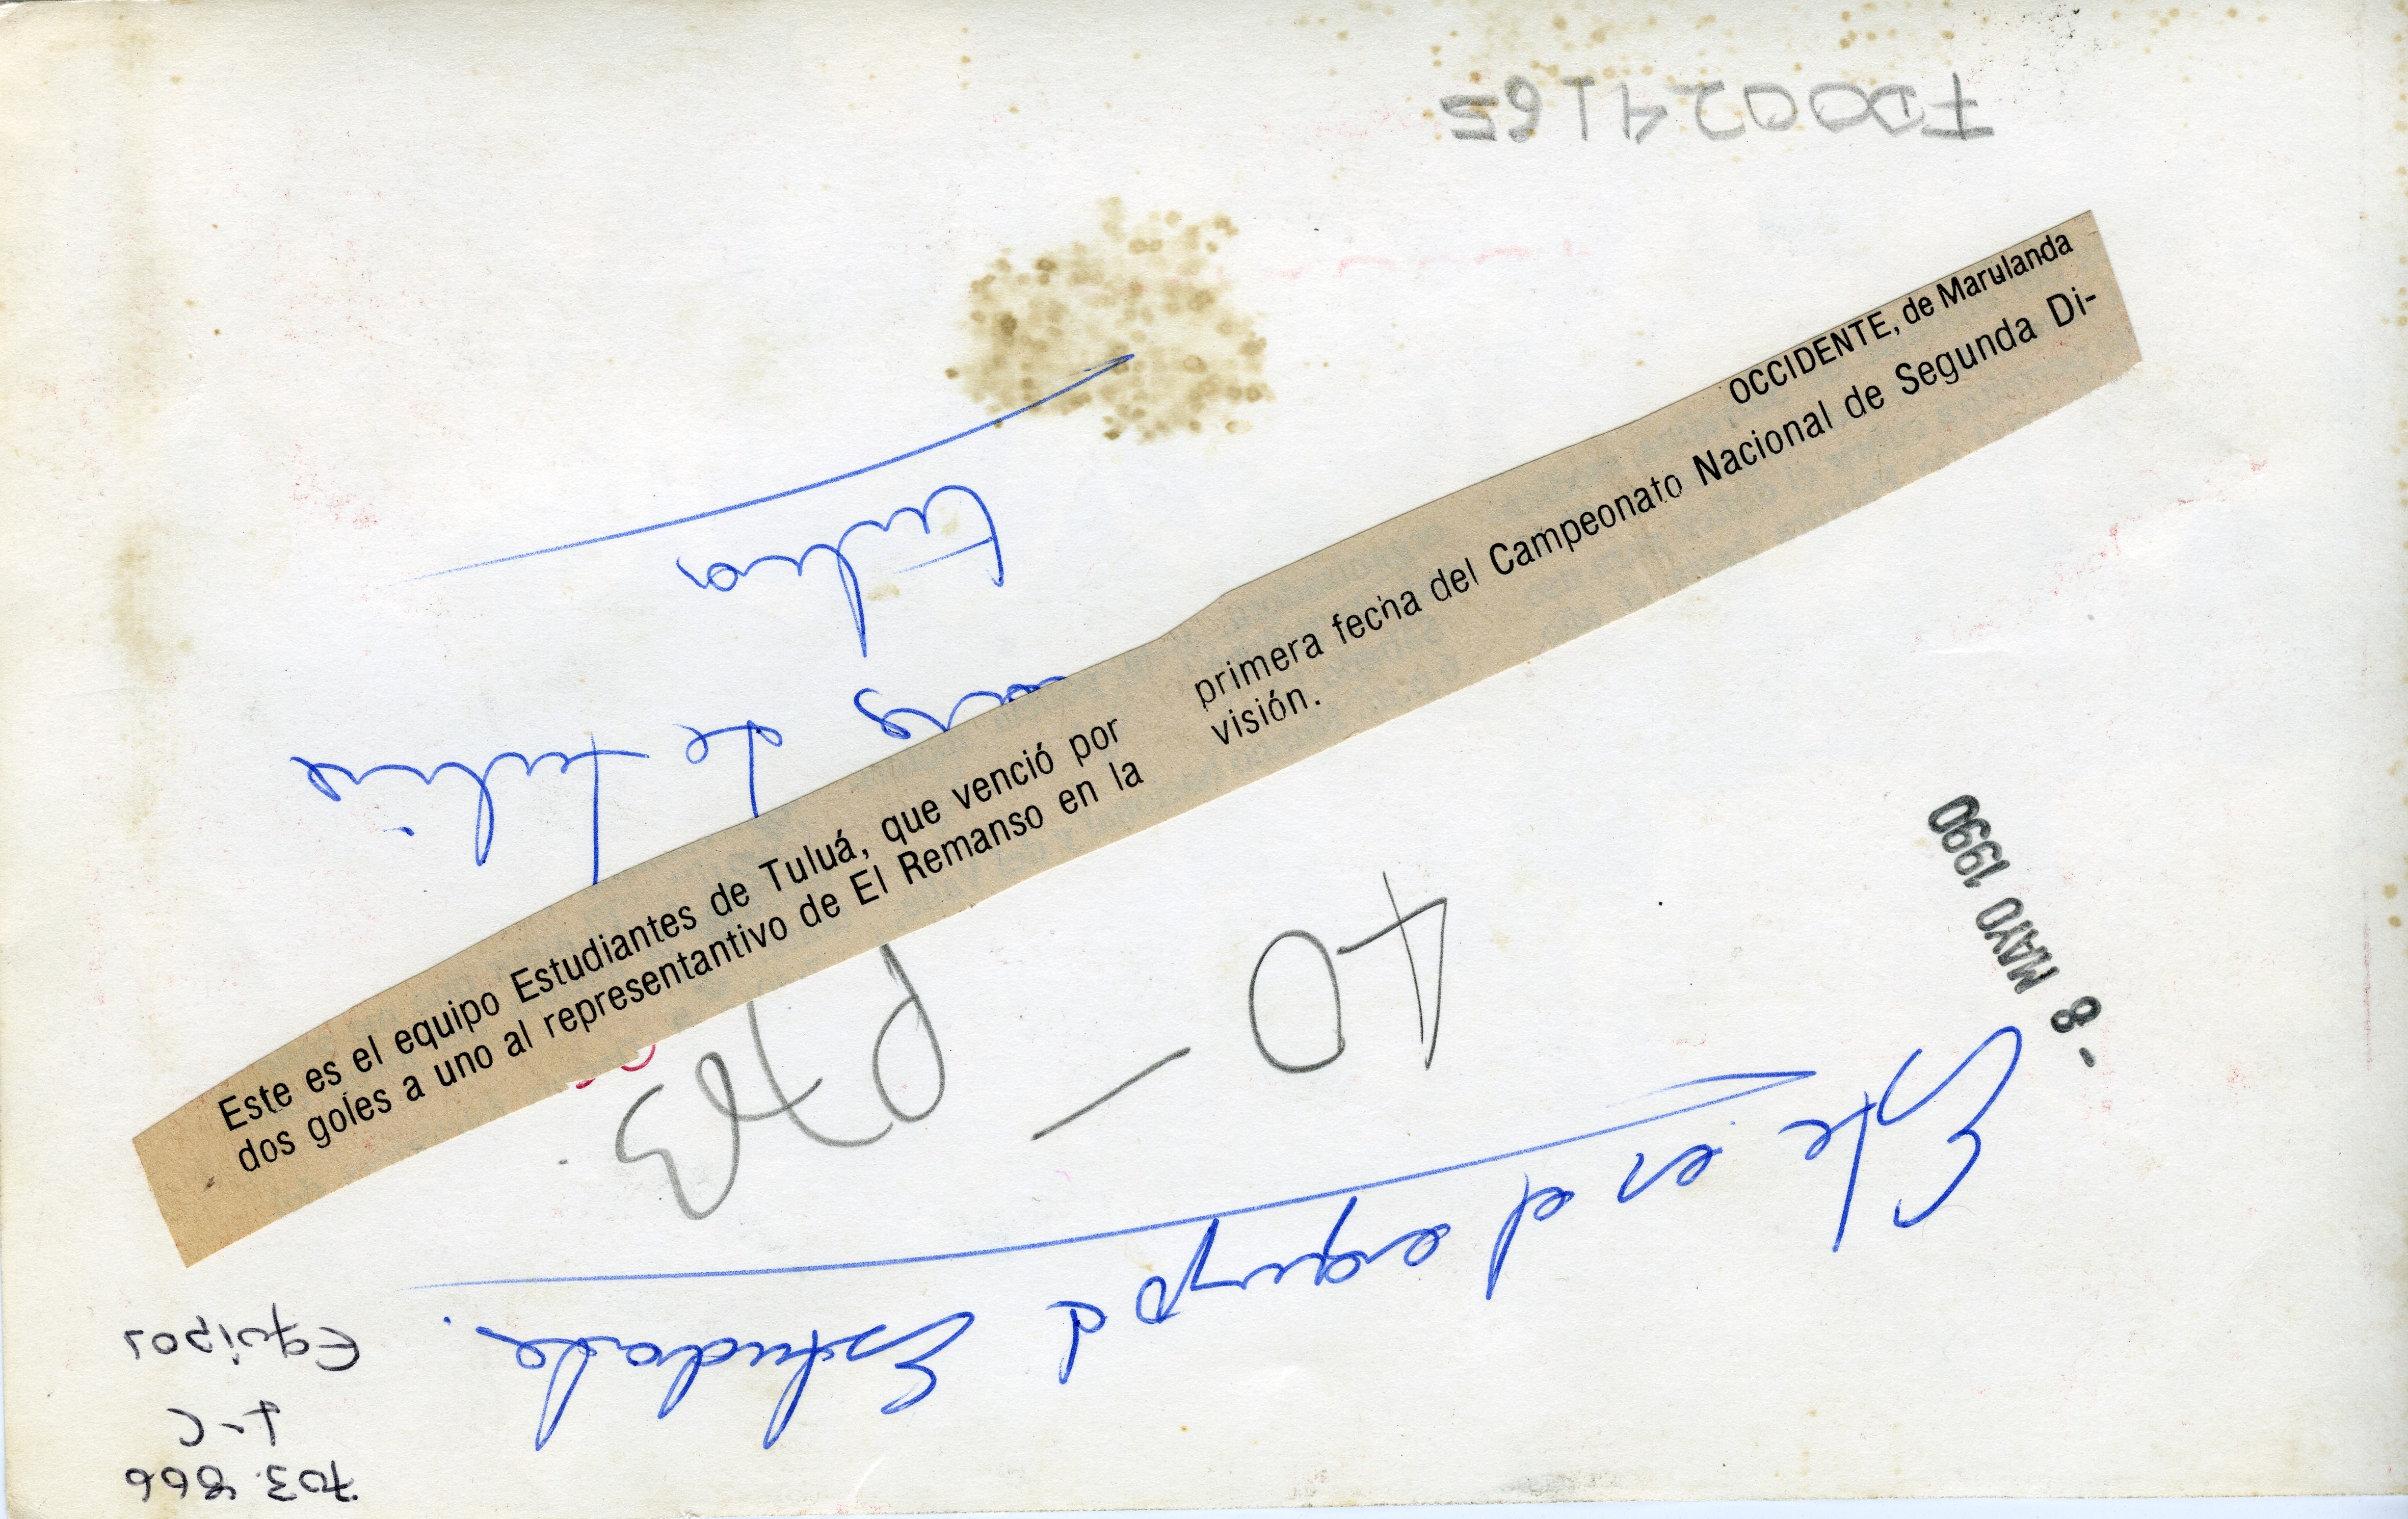 OCCIDENTE, de Marulanda
Este es el equipo Estudiantes de Tuluá, que venció por
dos goles a uno al representantivo de El Remanso en la
primera fecha del Campeonato Nacional de Segunda Di-
visión.
-8 MAYO 1990
703.866
1-C
Equipos
Este es el equipo d
40 —
de tulua
tulua
7D0024165